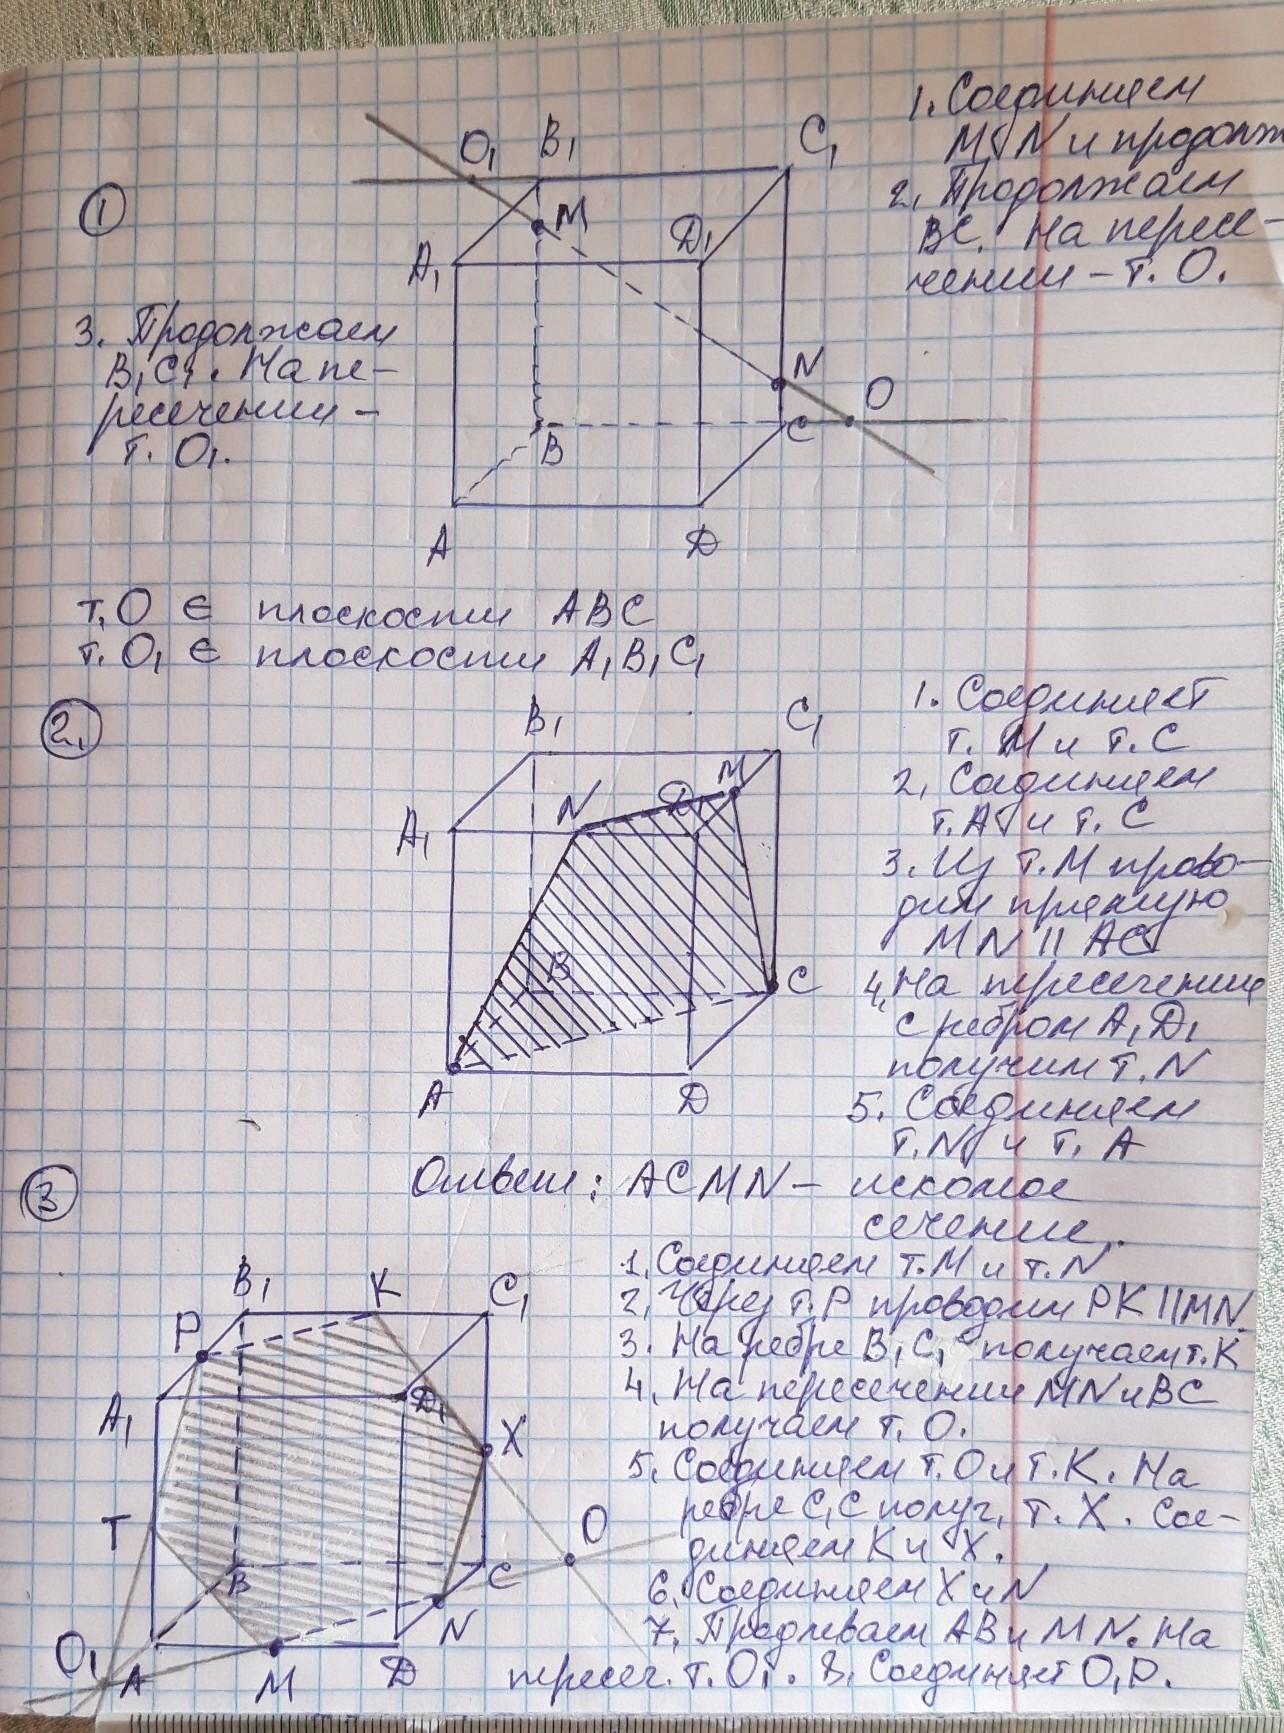 1. Соединяем
M и N и продолж
2. Продолжаем
BC. На пересе-
чении - т. O.
①
O₁ B₁ C₁
M
A₁ D₁
N
O
C
B
A D
3. Продолжаем
B₁C₁. На пе-
ресечении -
т. O₁.
т. O ∈ плоскости ABC
т. O₁ ∈ плоскости A₁B₁C₁
②
B₁ C₁
M
N D₁
A₁
B C
A D
1. Соединяет
т. M и т. C
2. Соединяем
т. A и т. C
3. Из т. M прово-
дим прямую
MN || AC
4. На пересечении
с ребром A₁D₁
получим т. N
5. Соединяем
т. N и т. A
Ответ: ACMN - искомое
сечение.
③
B₁ K C₁
P
A₁ D₁
X
T
O
B C
N
O₁ A M D
1. Соединяем т. M и т. N
2. Через т. P проводим PK || MN.
3. На ребре B₁C₁ получаем т. K
4. На пересечении MN и BC
получаем т. O.
5. Соединяем т. O и т. K. На
ребре C₁C получ. т. X. Сое-
диняем K и X.
6. Соединяем X и N
7. Продлеваем AB и MN. На
пересеч. т. O₁. 8. Соединяет O₁P.